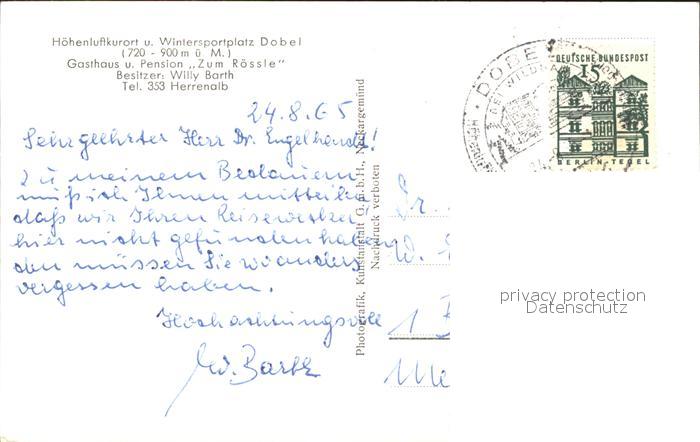 Höhenluftkurort u. Wintersportplatz Dobel
(720 - 900 m ü. M.)
Gasthaus u. Pension „Zum Rössle"
Besitzer: Willy Barth
Tel. 353 Herrenalb
24.8.65
Sehr geehrter Herr Dr. Engelhardt!
Zu meinem Bedauern
muß ich Ihnen mitteilen
daß wir Ihren Reisewecker
hier nicht gefunden haben
den müssen Sie wo anders
vergessen haben.
Hochachtungsvoll
W. Barth
Photografik, Kunstanstalt G.m.b.H., Neckargemünd
Nachdruck verboten
DOBEL
DEUTSCHE BUNDESPOST
15
BERLIN-TEGEL
Dr.
W.
1
privacy protection
Datenschutz